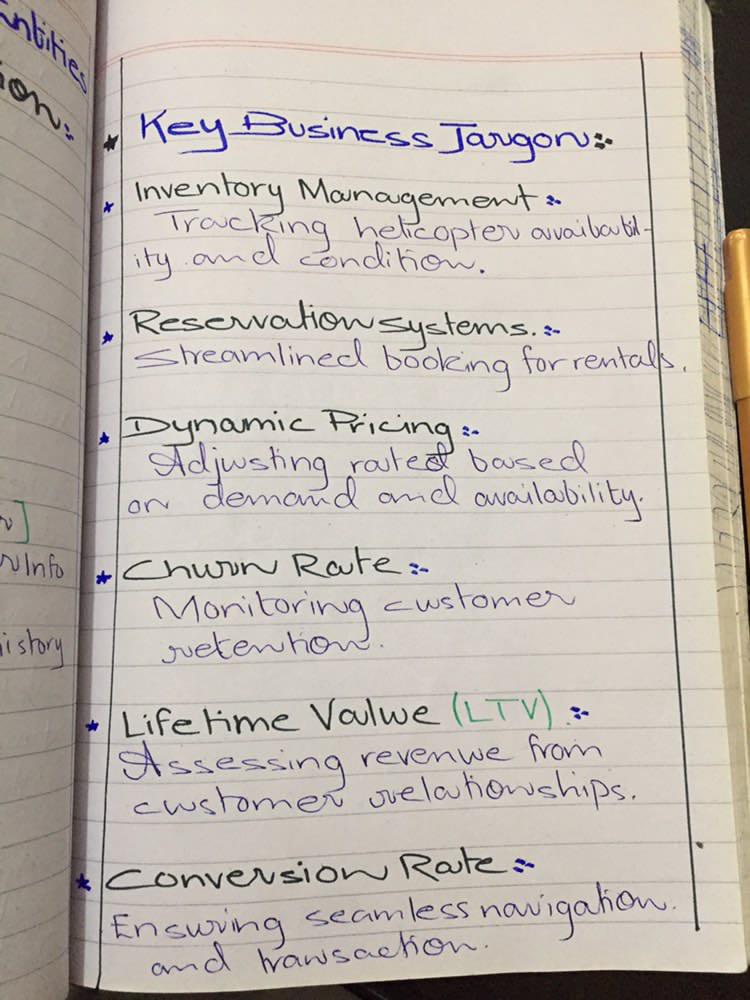 ntities
ion:-
* Key Business Jargon:-
* Inventory Management :-
Tracking helicopter availabil-
ity and condition.
* Reservation systems. :-
Streamlined booking for rentals.
* Dynamic Pricing :-
Adjusting rated based
on demand and availability.
* Churn Rate :-
Monitoring customer
retention.
* Lifetime Value (LTV) :-
Assessing revenue from
customer relationships.
* Conversion Rate :-
Ensuring seamless navigation.
and transaction.
r]
r Info
history